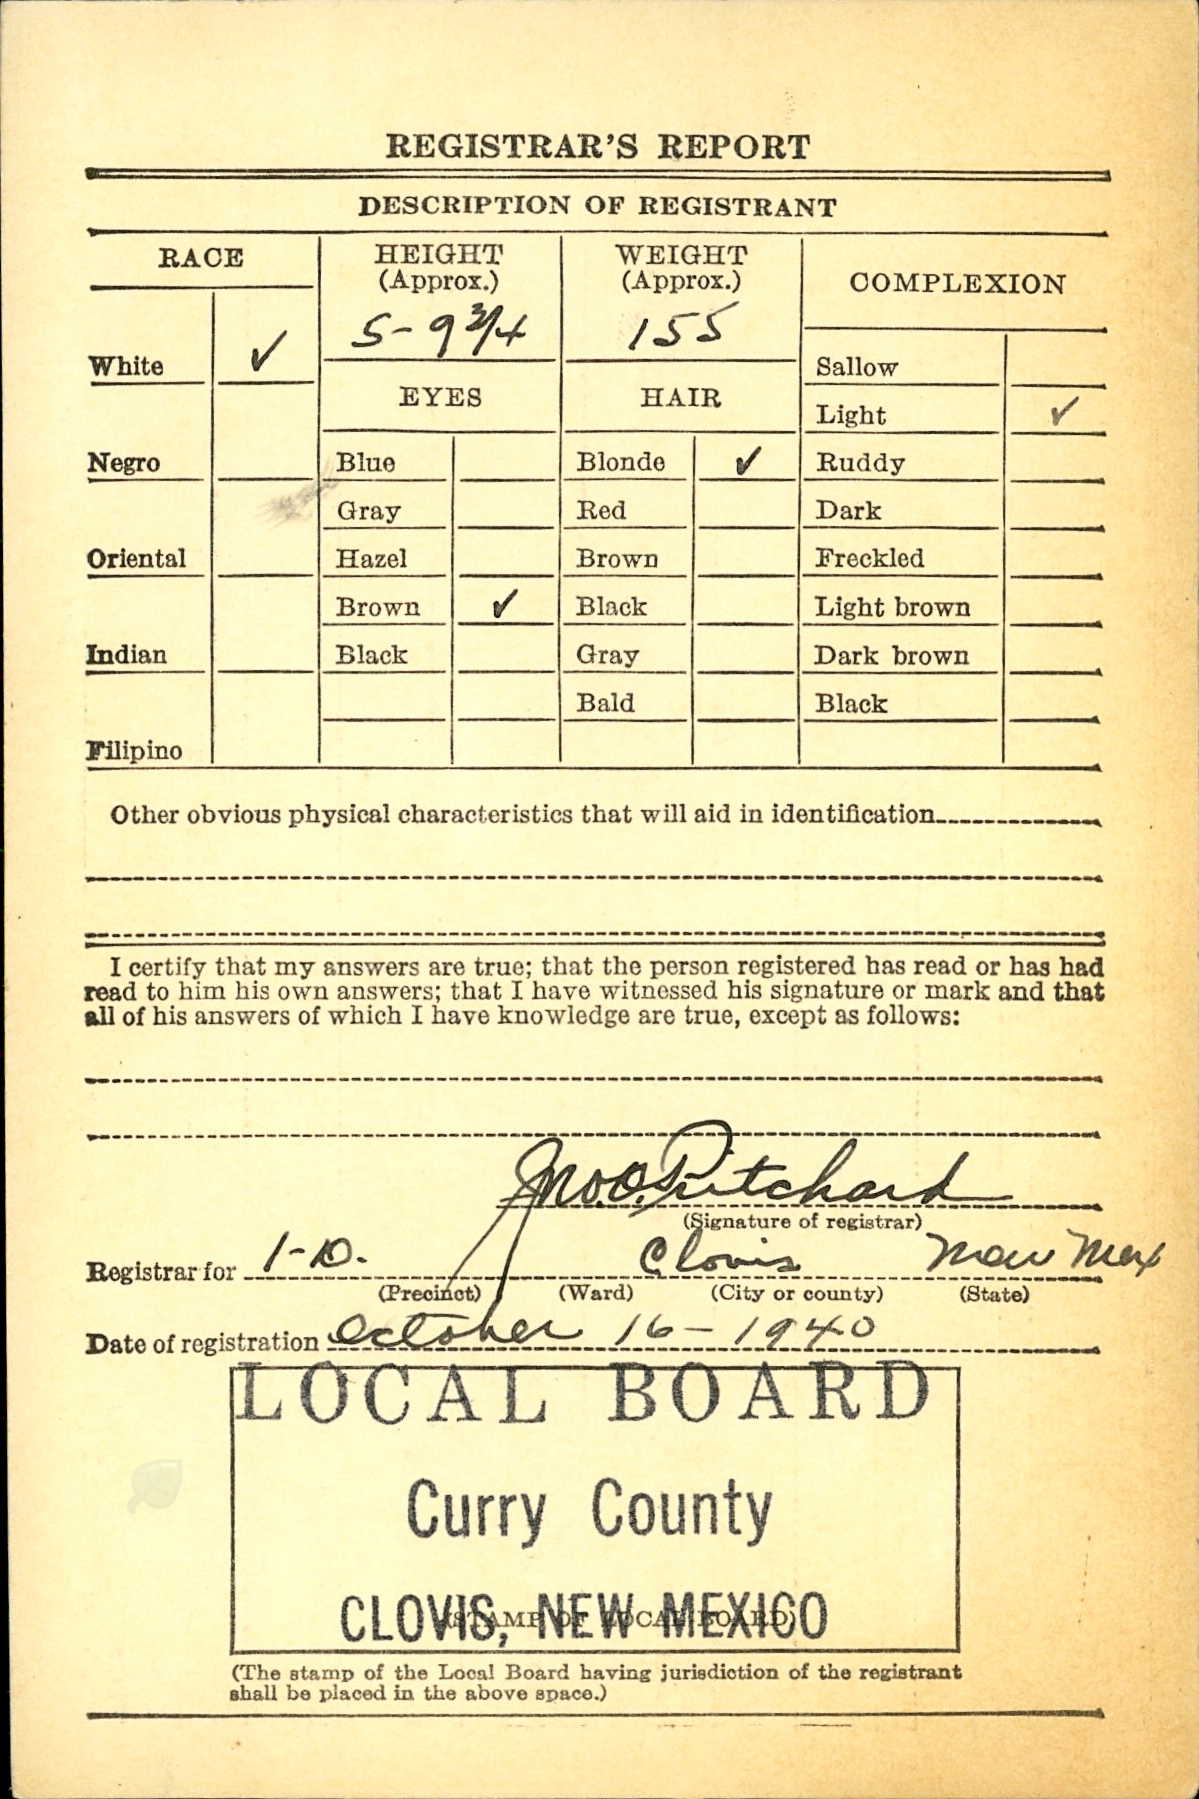 REGISTRAR'S REPORT
DESCRIPTION OF REGISTRANT
RACE
HEIGHT
(Approx.)
WEIGHT
(Approx.)
COMPLEXION
5-9 3/4
155
White ✓
Sallow
EYES
HAIR
Light ✓
Negro
Blue
Blonde ✓
Ruddy
Gray
Red
Dark
Oriental
Hazel
Brown
Freckled
Brown ✓
Black
Light brown
Indian
Black
Gray
Dark brown
Bald
Black
Filipino
Other obvious physical characteristics that will aid in identification
I certify that my answers are true; that the person registered has read or has had
read to him his own answers; that I have witnessed his signature or mark and that
all of his answers of which I have knowledge are true, except as follows:
Jno. O. Pritchard
(Signature of registrar)
Registrar for 1-D. Clovis New Mex
(Precinct) (Ward) (City or county) (State)
Date of registration October 16-1940
LOCAL BOARD
Curry County
CLOVIS, NEW MEXICO
(STAMP OF LOCAL BOARD)
(The stamp of the Local Board having jurisdiction of the registrant
shall be placed in the above space.)